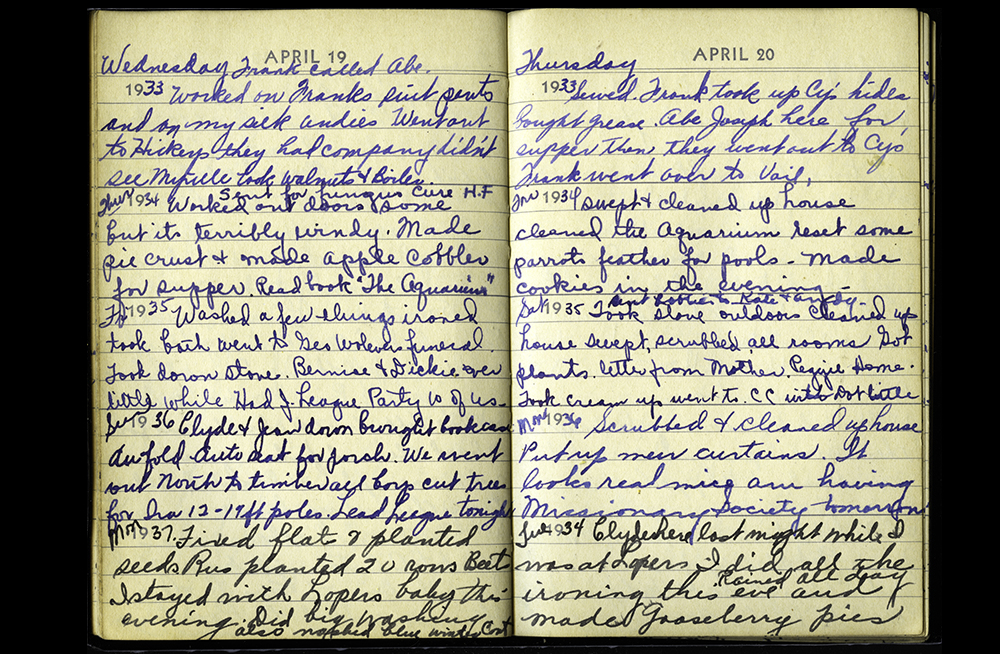 APRIL 19
Wednesday Frank called Abe.
1933 Worked on Franks suit pants
and on my silk undies Went out
to Hickeys they had company didn't
see Myrtle took walnuts &
Sent for fungus Cure H.F
Thur 1934 Worked out doors some
but its terribly windy. Made
pie crust & made apple cobbler
for supper. Read book "The Aquarium"
Fri 1935 Washed a few things ironed
took bath went to Geo Wolevers funeral.
Took down stove. Bernise & Dickie over
little while Had J. League Party 10 of us.
Sun 1936 Clyde & Jean down brought bookcase
an old auto seat for porch. We went
out North to timber all boys cut trees
for Ira 12-14 ft poles. Lead League tonight
Mon 1937. Fixed flats & planted
seeds Rus planted 20 rows Beets
I stayed with Lopers baby this
evening. Did big washing
also washed blue winter Coat
APRIL 20
Thursday
1933 Sewed. Frank took up Cy's hides
bought grease. Abe Joseph here for
supper then they went out to Cys
Frank went over to Vail,
Fri 1934 Swept & cleaned up house
cleaned the aquarium reset some
parrots feather for pools - made
cookies in the evening -
Sent to Kate & Andy.
Sat 1935 Took stove outdoors cleaned up
house swept, scrubbed all rooms Got
plants. letter from Mother. Home.
Took cream up went to CC with Dot little
Mon 1936 Scrubbed & cleaned up house
Put up new curtains. It
looks real nice am having
Missionary Society tomorrow
Tue 1934 Clyde here last night while I
was at Lopers I did all the
Rained all day
ironing this eve and
made Gooseberry pies